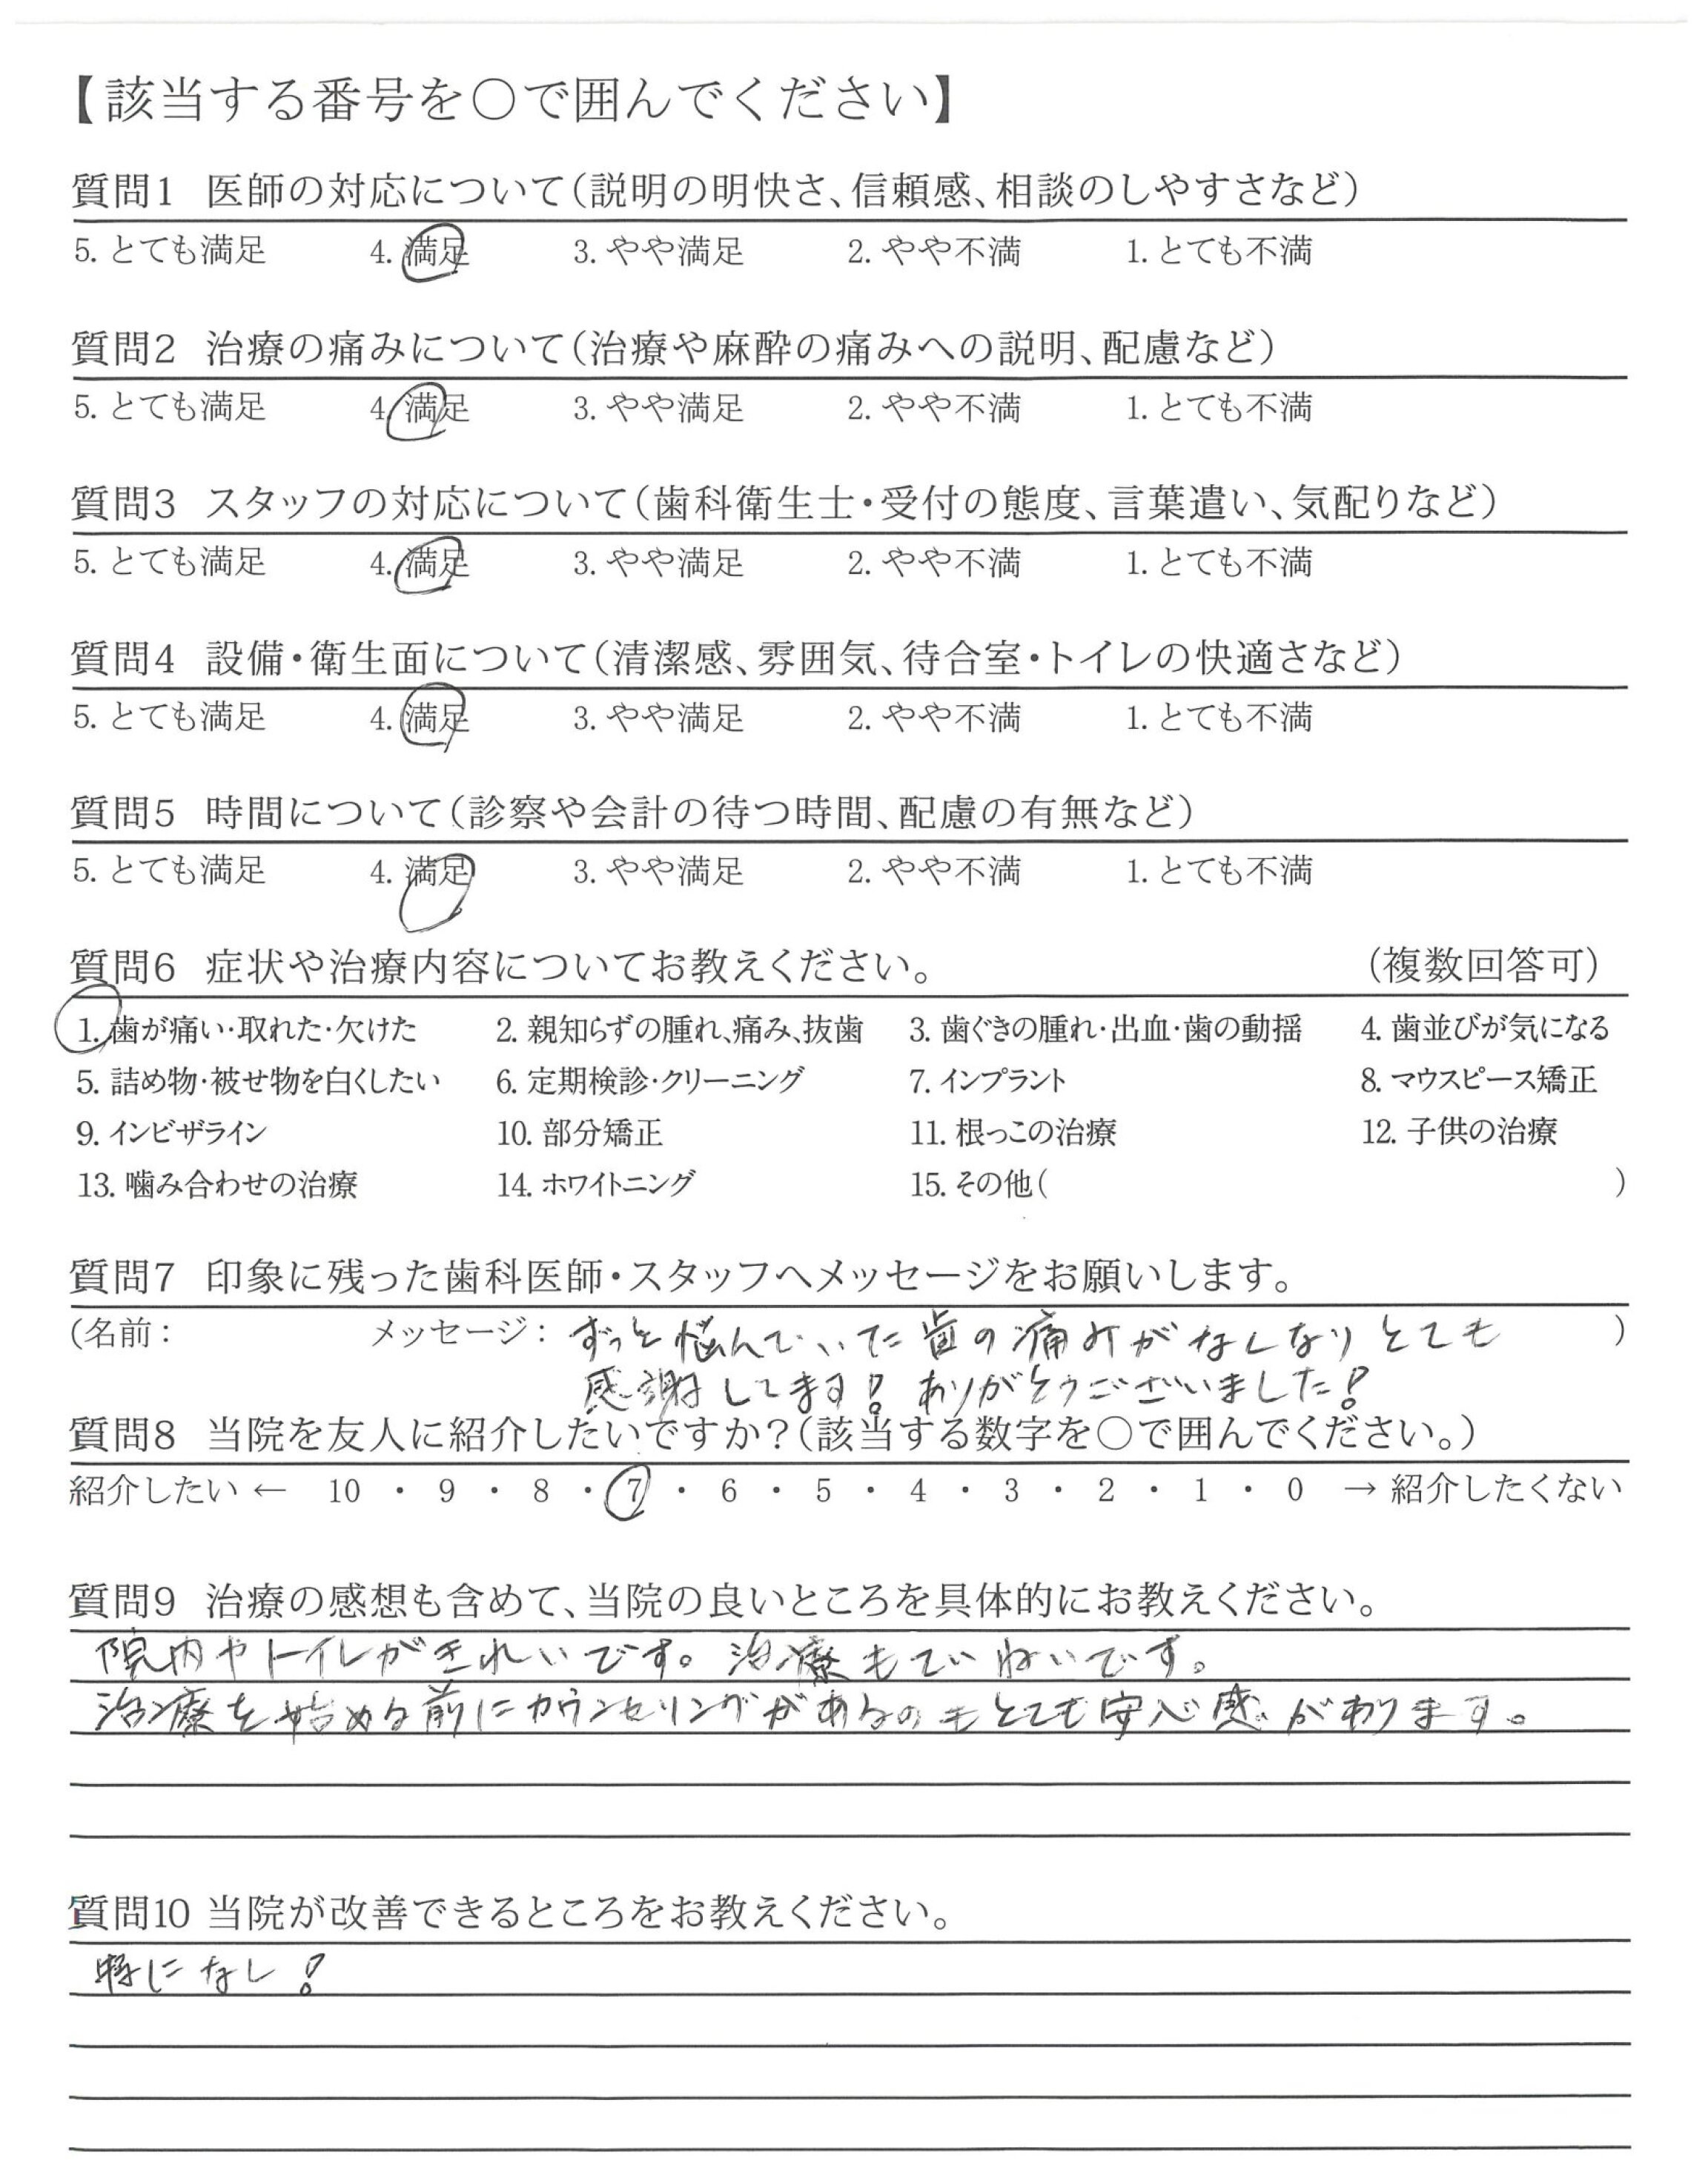 【該当する番号を○で囲んでください】
質問1 医師の対応について(説明の明快さ、信頼感、相談のしやすさなど)
5. とても満足 4. 満足 3. やや満足 2. やや不満 1. とても不満
質問2 治療の痛みについて(治療や麻酔の痛みへの説明、配慮など)
5. とても満足 4. 満足 3. やや満足 2. やや不満 1. とても不満
質問3 スタッフの対応について(歯科衛生士・受付の態度、言葉遣い、気配りなど)
5. とても満足 4. 満足 3. やや満足 2. やや不満 1. とても不満
質問4 設備・衛生面について(清潔感、雰囲気、待合室・トイレの快適さなど)
5. とても満足 4. 満足 3. やや満足 2. やや不満 1. とても不満
質問5 時間について(診察や会計の待つ時間、配慮の有無など)
5. とても満足 4. 満足 3. やや満足 2. やや不満 1. とても不満
質問6 症状や治療内容についてお教えください。 (複数回答可)
1. 歯が痛い・取れた・欠けた 2. 親知らずの腫れ、痛み、抜歯 3. 歯ぐきの腫れ・出血・歯の動揺 4. 歯並びが気になる
5. 詰め物・被せ物を白くしたい 6. 定期検診・クリーニング 7. インプラント 8. マウスピース矯正
9. インビザライン 10. 部分矯正 11. 根っこの治療 12. 子供の治療
13. 噛み合わせの治療 14. ホワイトニング 15. その他( )
質問7 印象に残った歯科医師・スタッフへメッセージをお願いします。
(名前: メッセージ: ずっと悩んでいた歯の痛みがなくなりとても )
感謝してます! ありがとうございました!
質問8 当院を友人に紹介したいですか?(該当する数字を○で囲んでください。)
紹介したい ← 10 ・ 9 ・ 8 ・ 7 ・ 6 ・ 5 ・ 4 ・ 3 ・ 2 ・ 1 ・ 0 → 紹介したくない
質問9 治療の感想も含めて、当院の良いところを具体的にお教えください。
院内やトイレがきれいです。治療もていねいです。
治療を始める前にカウンセリングがあるのもとても安心感があります。
質問10 当院が改善できるところをお教えください。
特になし!